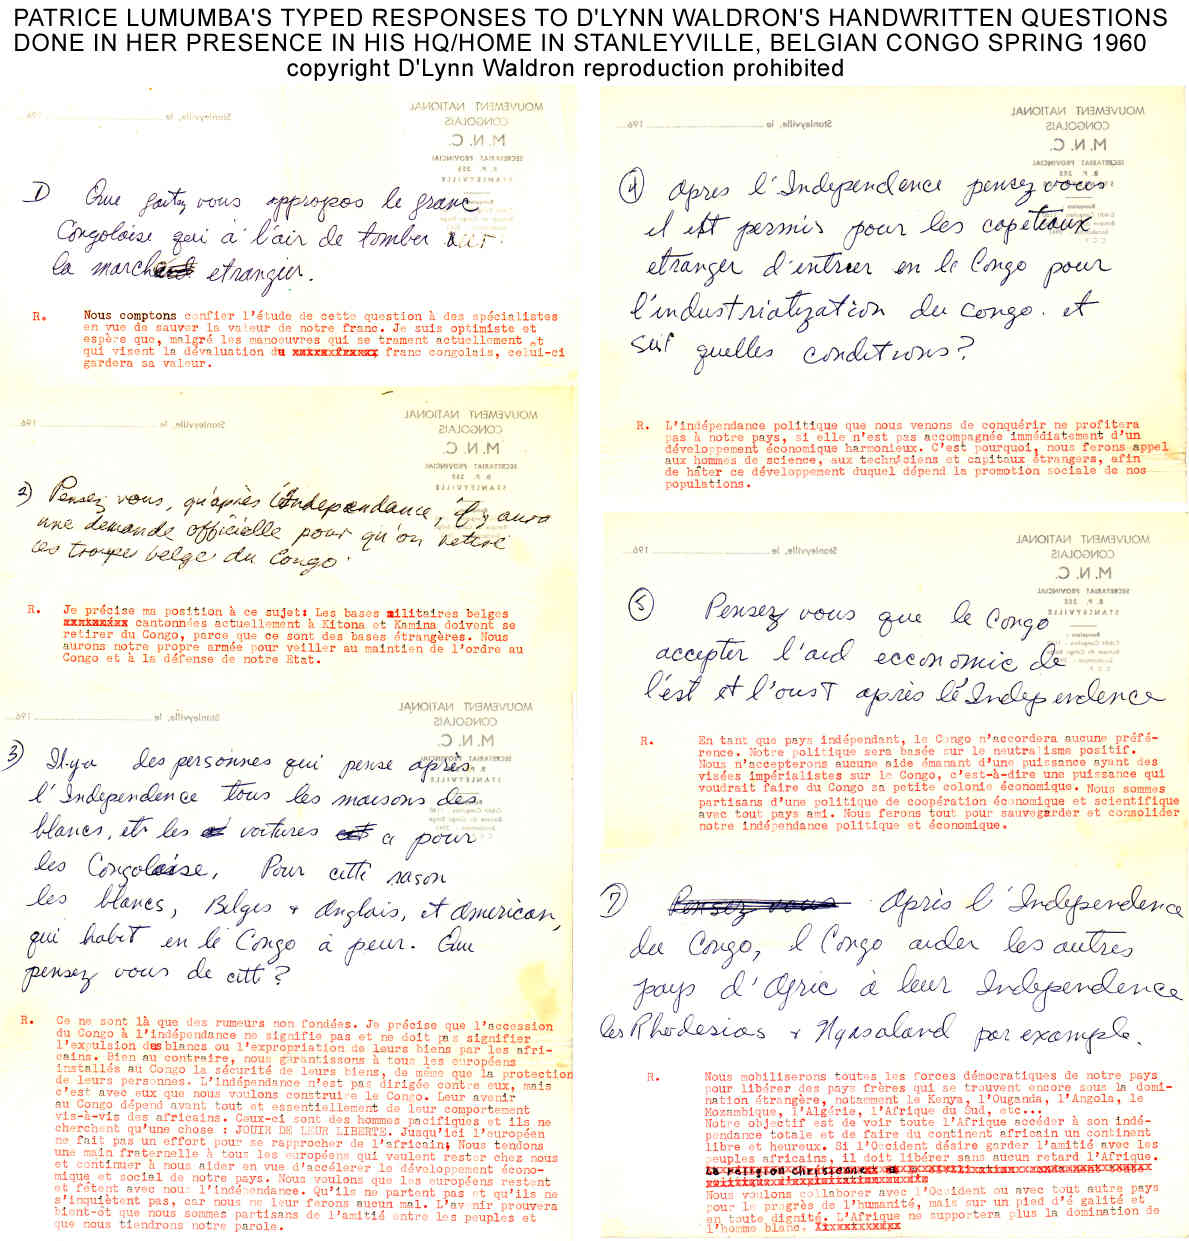 PATRICE LUMUMBA'S TYPED RESPONSES TO D'LYNN WALDRON'S HANDWRITTEN QUESTIONS
DONE IN HER PRESENCE IN HIS HQ/HOME IN STANLEYVILLE, BELGIAN CONGO SPRING 1960
copyright D'Lynn Waldron reproduction prohibited
Stanleyville, le 196
MOUVEMENT NATIONAL
CONGOLAIS
M.N.C.
SECRETARIAT PROVINCIAL
B. P. 253
STANLEYVILLE
1) Que faitez vous appropos le franc
Congolaise qui à l'air de tomber sur
la march etrangier.
R. Nous comptons confier l'étude de cette question à des spécialistes
en vue de sauver la valeur de notre franc. Je suis optimiste et
espère que, malgré les manoeuvres qui se trament actuellement et
qui visent la dévaluation du xxxxxxfrxxxxx franc congolais, celui-ci
gardera sa valeur.
Stanleyville, le 196
MOUVEMENT NATIONAL
CONGOLAIS
M.N.C.
SECRETARIAT PROVINCIAL
B. P. 253
STANLEYVILLE
2) Pensez vous, qu'après l'Independance, il y aura
une demande officielle pour qu'on retire
les troupe belge du Congo.
R. Je précise ma position à ce sujet: Les bases militaires belges
cantonnées actuellement à Kitona et Kamina doivent se
retirer du Congo, parce que ce sont des bases étrangères. Nous
aurons notre propre armée pour veiller au maintien de l'ordre au
Congo et à la défense de notre Etat.
Stanleyville, le 196
MOUVEMENT NATIONAL
CONGOLAIS
M.N.C.
SECRETARIAT PROVINCIAL
STANLEYVILLE
3) Il.ya des personnes qui pense après
l'Independence tous les maisons des
blancs, et les voitures a pour
les Congolaise. Pour cette rason
les blancs, Belges & Anglais, et American,
qui habit en le Congo à peur. Que
pensez vous de cett?
R. Ce ne sont là que des rumeurs non fondées. Je précise que l'accession
du Congo à l'indépendance ne signifie pas et ne doit pas signifier
l'expulsion des blancs ou l'expropriation de leurs biens par les afri-
cains. Bien au contraire, nous garantissons à tous les européens
installés au Congo la sécurité de leurs biens, de même que la protection
de leurs personnes. L'indépendance n'est pas dirigée contre eux, mais
c'est avec eux que nous voulons construire le Congo. Leur avenir
au Congo dépend avant tout et essentiellement de leur comportement
vis-à-vis des africains. Ceux-ci sont des hommes pacifiques et ils ne
cherchent qu'une chose : JOUIR DE LEUR LIBERTE. Jusqu'ici l'européen
ne fait pas un effort pour se rapprocher de l'africain; Nous tendons
une main fraternelle à tous les européens qui veulent rester chez nous
et continuer à nous aider en vue d'accélerer le développement écono-
mique et social de notre pays. Nous voulons que les européens restent
et fêtent avec nous l'indépendance. Qu'ils ne partent pas et qu'ils ne
s'inquiètent pas, car nous ne leur ferons aucun mal. L'avenir prouvera
bient-ôt que nous sommes partisans de l'amitié entre les peuples et
que nous tiendrons notre parole.
Stanleyville, le 196
MOUVEMENT NATIONAL
CONGOLAIS
M.N.C.
SECRETARIAT PROVINCIAL
B. P. 253
STANLEYVILLE
4) Apres l'Independence pensez vous
il est permis pour les capetiaux
etranger d'entrer en le Congo pour
l'industrialization du Congo. et
sur quelles conditions?
R. L'indépendance politique que nous venons de conquérir ne profitera
pas à notre pays, si elle n'est pas accompagnée immédiatement d'un
développement économique harmonieux. C'est pourquoi, nous ferons appel
aux hommes de science, aux techniciens et capitaux étrangers, afin
de hâter ce développement duquel dépend la promotion sociale de nos
populations.
Stanleyville, le 196
MOUVEMENT NATIONAL
CONGOLAIS
M.N.C.
SECRETARIAT PROVINCIAL
B. P. 253
STANLEYVILLE
5) Pensez vous que le Congo
accepter l'aid ecconomic de
l'est et l'oust après l'Independence
R. En tant que pays indépendant, le Congo n'accordera aucune préfé-
rence. Notre politique sera basée sur le neutralisme positif.
Nous n'accepterons aucune aide émanant d'une puissance ayant des
visées impérialistes sur le Congo, c'est-à-dire une puissance qui
voudrait faire du Congo sa petite colonie économique. Nous sommes
partisans d'une politique de coopération économique et scientifique
avec tout pays ami. Nous ferons tout pour sauvegarder et consolider
notre indépendance politique et économique.
7) Pensez vous Après l'Independence
du Congo, l Congo aider les autres
pays d'Afric à leur Independence
les Rhodesias & Nyasaland par example.
R. Nous mobiliserons toutes les forces démocratiques de notre pays
pour libérer des pays frères qui se trouvent encore sous la domi-
nation étrangère, notamment le Kenya, l'Ouganda, l'Angola, le
Mozambique, l'Algérie, l'Afrique du Sud, etc...
Notre objectif est de voir toute l'Afrique accéder à son indé-
pendance totale et de faire du continent africain un continent
libre et heureux. Si l'Occident désire garder l'amitié avec les
peuples africains, il doit libérer sans aucun retard l'Afrique.
La religion chrétienne
Nous voulons collaborer avec l'Occident ou avec tout autre pays
pour le progrès de l'humanité, mais sur un pied d'égalité et
en toute dignité. L'Afrique ne supportera plus la domination de
l'homme blanc.